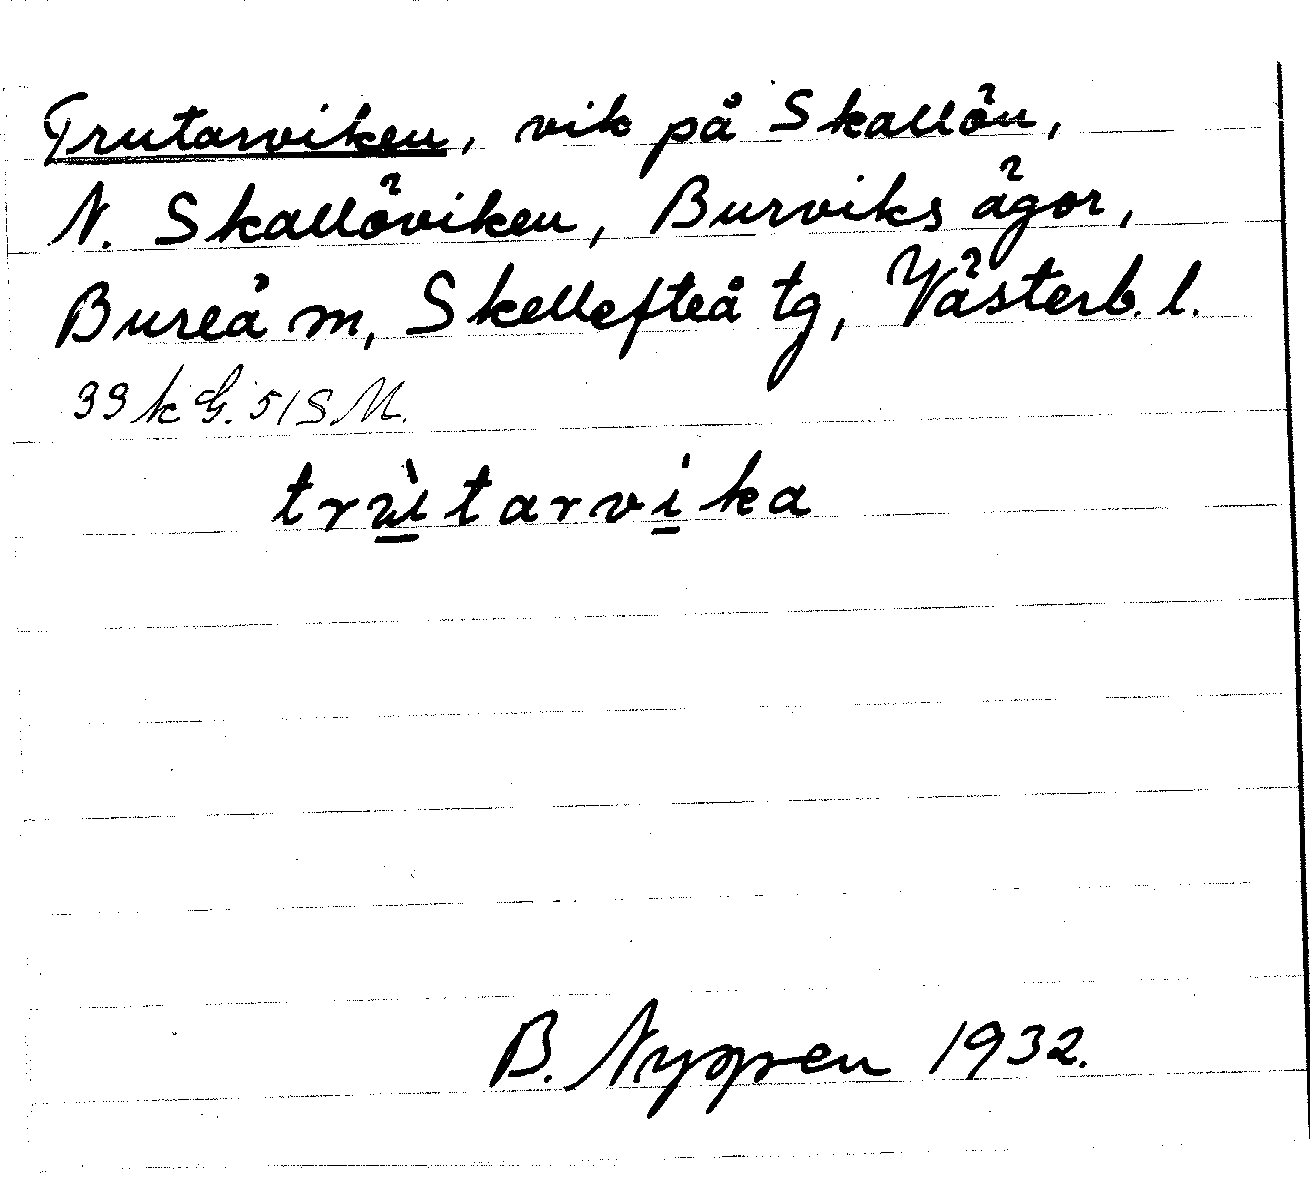 Trutarviken, vik på Skallön,
N. Skallöviken, Burviks ägor,
Bureå m, Skellefteå tg, Västerb. l.
39 k G. 51 S M.
trùtarvika
B. Nygren 1932.